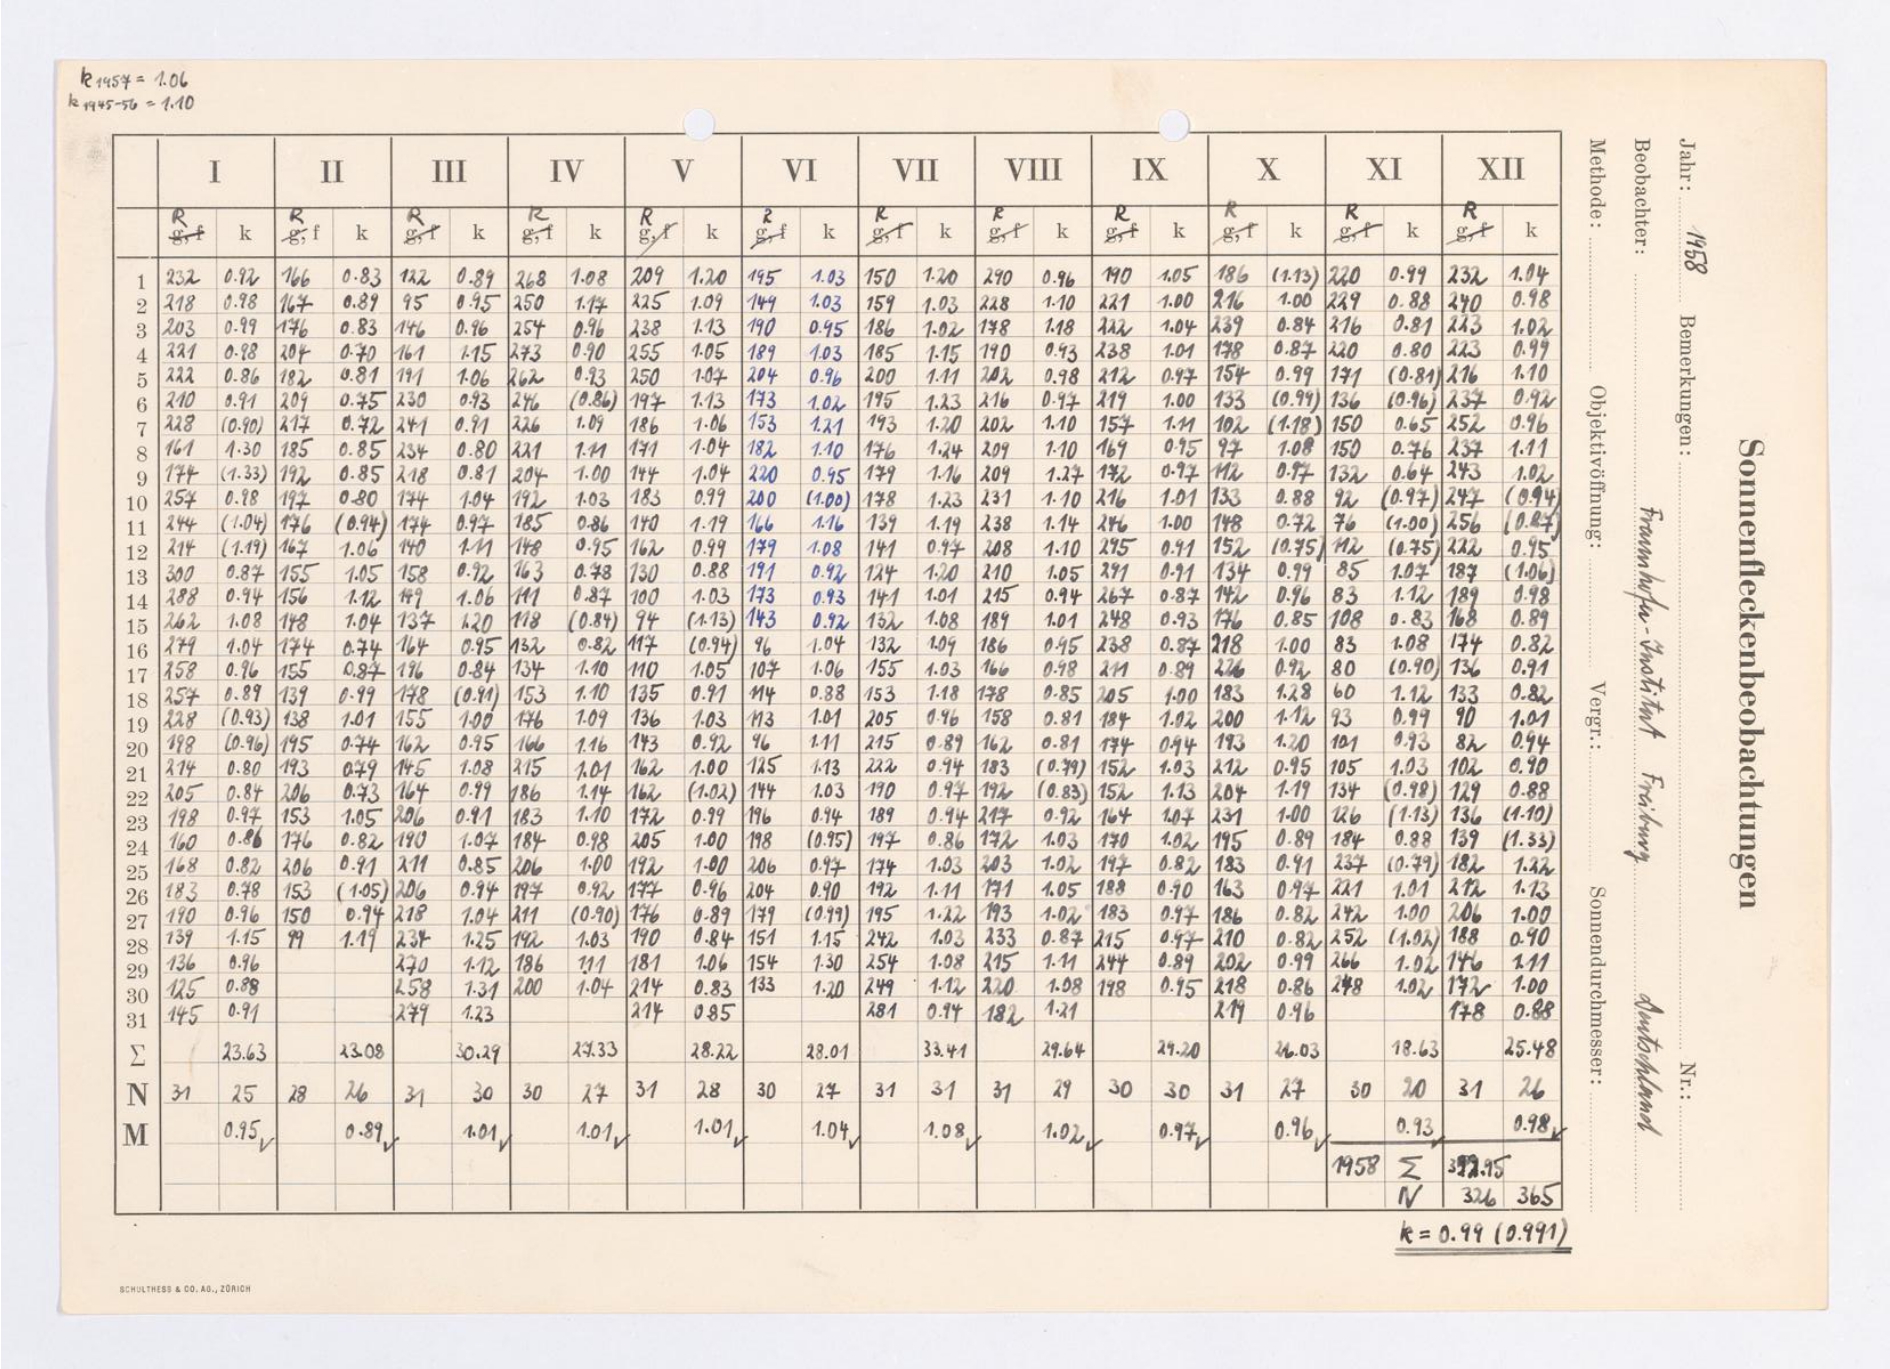 k 1957 = 1.06
k 1945-56 = 1.10
Sonnenfleckenbeobachtungen
Jahr: 1958 Bemerkungen: Nr.:
Beobachter: Fraunhofer-Institut Freiburg Deutschland
Methode: Objektivöffnung: Vergr.: Sonnendurchmesser:
I II III IV V VI VII VIII IX X XI XII
R R R R R R R R R R R R
g, f k g, f k g, f k g, f k g, f k g, f k g, f k g, f k g, f k g, f k g, f k g, f k
1 232 0.92 166 0.83 122 0.89 268 1.08 209 1.20 195 1.03 150 1.20 290 0.96 190 1.05 186 (1.13) 220 0.99 232 1.04
2 218 0.98 167 0.89 95 0.95 250 1.17 225 1.09 149 1.03 159 1.03 228 1.10 221 1.00 216 1.00 229 0.88 240 0.98
3 203 0.99 176 0.83 146 0.96 254 0.96 238 1.13 190 0.95 186 1.02 178 1.18 222 1.04 239 0.84 216 0.81 223 1.02
4 221 0.98 204 0.70 161 1.15 273 0.90 255 1.05 189 1.03 185 1.15 190 0.93 238 1.01 178 0.87 220 0.80 223 0.99
5 222 0.86 182 0.81 191 1.06 262 0.93 250 1.07 204 0.96 200 1.11 202 0.98 212 0.97 154 0.99 171 (0.81) 216 1.10
6 210 0.91 209 0.75 230 0.93 246 (0.86) 197 1.13 173 1.02 195 1.23 216 0.97 219 1.00 133 (0.99) 136 (0.96) 237 0.92
7 228 (0.90) 217 0.72 241 0.91 226 1.09 186 1.06 153 1.21 193 1.20 202 1.10 157 1.11 102 (1.18) 150 0.65 252 0.96
8 161 1.30 185 0.85 234 0.80 221 1.11 171 1.04 182 1.10 176 1.24 209 1.10 169 0.95 97 1.08 150 0.76 237 1.11
9 174 (1.33) 192 0.85 218 0.81 204 1.00 144 1.04 220 0.95 179 1.16 209 1.27 172 0.97 112 0.97 132 0.64 243 1.02
10 257 0.98 197 0.80 174 1.04 192 1.03 183 0.99 200 (1.00) 178 1.23 231 1.10 216 1.01 133 0.88 92 (0.97) 247 (0.94)
11 244 (1.04) 176 (0.94) 174 0.97 185 0.86 140 1.19 166 1.16 139 1.19 238 1.14 246 1.00 148 0.72 76 (1.00) 256 (0.87)
12 214 (1.19) 167 1.06 140 1.11 148 0.95 162 0.99 179 1.08 141 0.97 208 1.10 295 0.91 152 (0.75) 112 (0.75) 222 0.95
13 300 0.87 155 1.05 158 0.92 163 0.78 130 0.88 191 0.92 124 1.20 210 1.05 291 0.91 134 0.99 85 1.07 187 (1.06)
14 288 0.94 156 1.12 149 1.06 111 0.87 100 1.03 173 0.93 141 1.01 215 0.94 267 0.87 142 0.96 83 1.12 189 0.98
15 262 1.08 148 1.04 137 1.20 118 (0.84) 94 (1.13) 143 0.92 132 1.08 189 1.01 248 0.93 176 0.85 108 0.83 168 0.89
16 279 1.04 174 0.74 164 0.95 132 0.82 117 (0.94) 96 1.04 132 1.09 186 0.95 238 0.87 218 1.00 83 1.08 174 0.82
17 258 0.96 155 0.87 196 0.84 134 1.10 110 1.05 107 1.06 155 1.03 166 0.98 211 0.89 226 0.92 80 (0.90) 136 0.91
18 257 0.89 139 0.99 178 (0.91) 153 1.10 135 0.91 114 0.88 153 1.18 178 0.85 205 1.00 183 1.28 60 1.12 133 0.82
19 228 (0.93) 138 1.01 155 1.00 176 1.09 136 1.03 113 1.01 205 0.96 158 0.81 184 1.02 200 1.12 93 0.99 90 1.01
20 198 (0.96) 195 0.74 162 0.95 166 1.16 143 0.92 96 1.11 215 0.89 162 0.81 174 0.94 193 1.20 101 0.93 82 0.94
21 214 0.80 193 0.79 145 1.08 215 1.01 162 1.00 125 1.13 222 0.94 183 (0.79) 152 1.03 212 0.95 105 1.03 102 0.90
22 205 0.84 206 0.73 164 0.99 186 1.14 162 (1.02) 144 1.03 190 0.97 192 (0.83) 152 1.13 204 1.19 134 (0.98) 129 0.88
23 198 0.97 153 1.05 206 0.91 183 1.10 172 0.99 196 0.94 189 0.94 217 0.92 164 1.07 231 1.00 126 (1.13) 136 (1.10)
24 160 0.86 176 0.82 190 1.07 184 0.98 205 1.00 198 (0.95) 197 0.86 172 1.03 170 1.02 195 0.89 184 0.88 139 (1.33)
25 168 0.82 206 0.91 211 0.85 206 1.00 192 1.00 206 0.97 174 1.03 203 1.02 197 0.82 183 0.91 237 (0.79) 182 1.22
26 183 0.78 153 (1.05) 206 0.94 197 0.92 177 0.96 204 0.90 192 1.11 171 1.05 188 0.90 163 0.97 221 1.01 212 1.13
27 190 0.96 150 0.94 218 1.04 211 (0.90) 176 0.89 179 (0.99) 195 1.22 193 1.02 183 0.97 186 0.82 242 1.00 206 1.00
28 139 1.15 99 1.19 234 1.25 192 1.03 190 0.84 151 1.15 242 1.03 233 0.87 215 0.97 210 0.82 252 (1.02) 188 0.90
29 136 0.96 270 1.12 186 1.11 181 1.06 154 1.30 254 1.08 215 1.11 244 0.89 202 0.99 266 1.02 146 1.11
30 125 0.88 258 1.31 200 1.04 214 0.83 133 1.20 249 1.12 220 1.08 198 0.95 218 0.86 248 1.02 172 1.00
31 145 0.91 279 1.23 214 0.85 281 0.94 182 1.21 219 0.96 178 0.88
Σ 23.63 23.08 30.29 27.33 28.22 28.01 33.41 29.64 29.20 26.03 18.63 25.48
N 31 25 28 26 31 30 30 27 31 28 30 27 31 31 31 29 30 30 31 27 30 20 31 26
M 0.95 0.89 1.01 1.01 1.01 1.04 1.08 1.02 0.97 0.96 0.93 0.98
1958 Σ
N 326 365
k = 0.99 (0.991)
SCHULTHESS & CO. AG., ZÜRICH